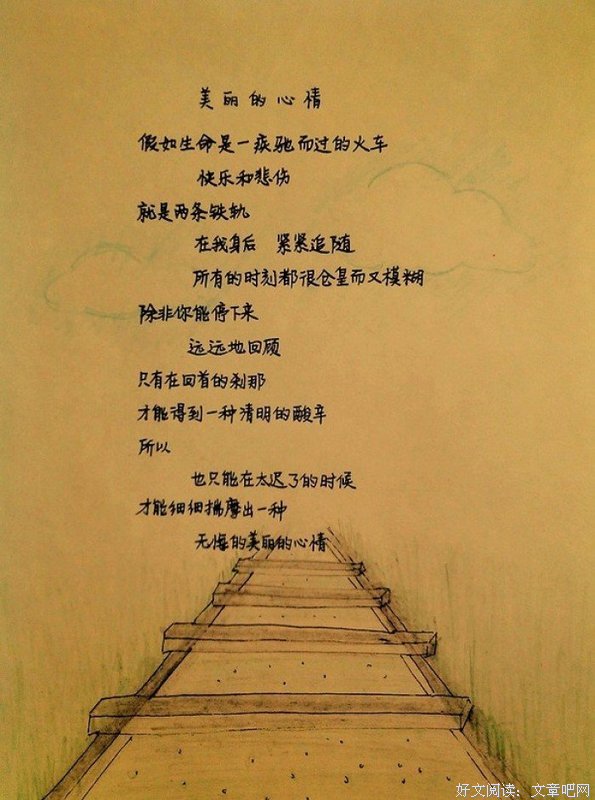 美丽的心情
假如生命是一疾驰而过的火车
快乐和悲伤
就是两条铁轨
在我身后 紧紧追随
所有的时刻都很仓皇而又模糊
除非你能停下来
远远地回顾
只有在回首的刹那
才能得到一种清明的酸辛
所以
也只能在太迟了的时候
才能细细揣摩出一种
无悔的美丽的心情
好文阅读:文章吧网